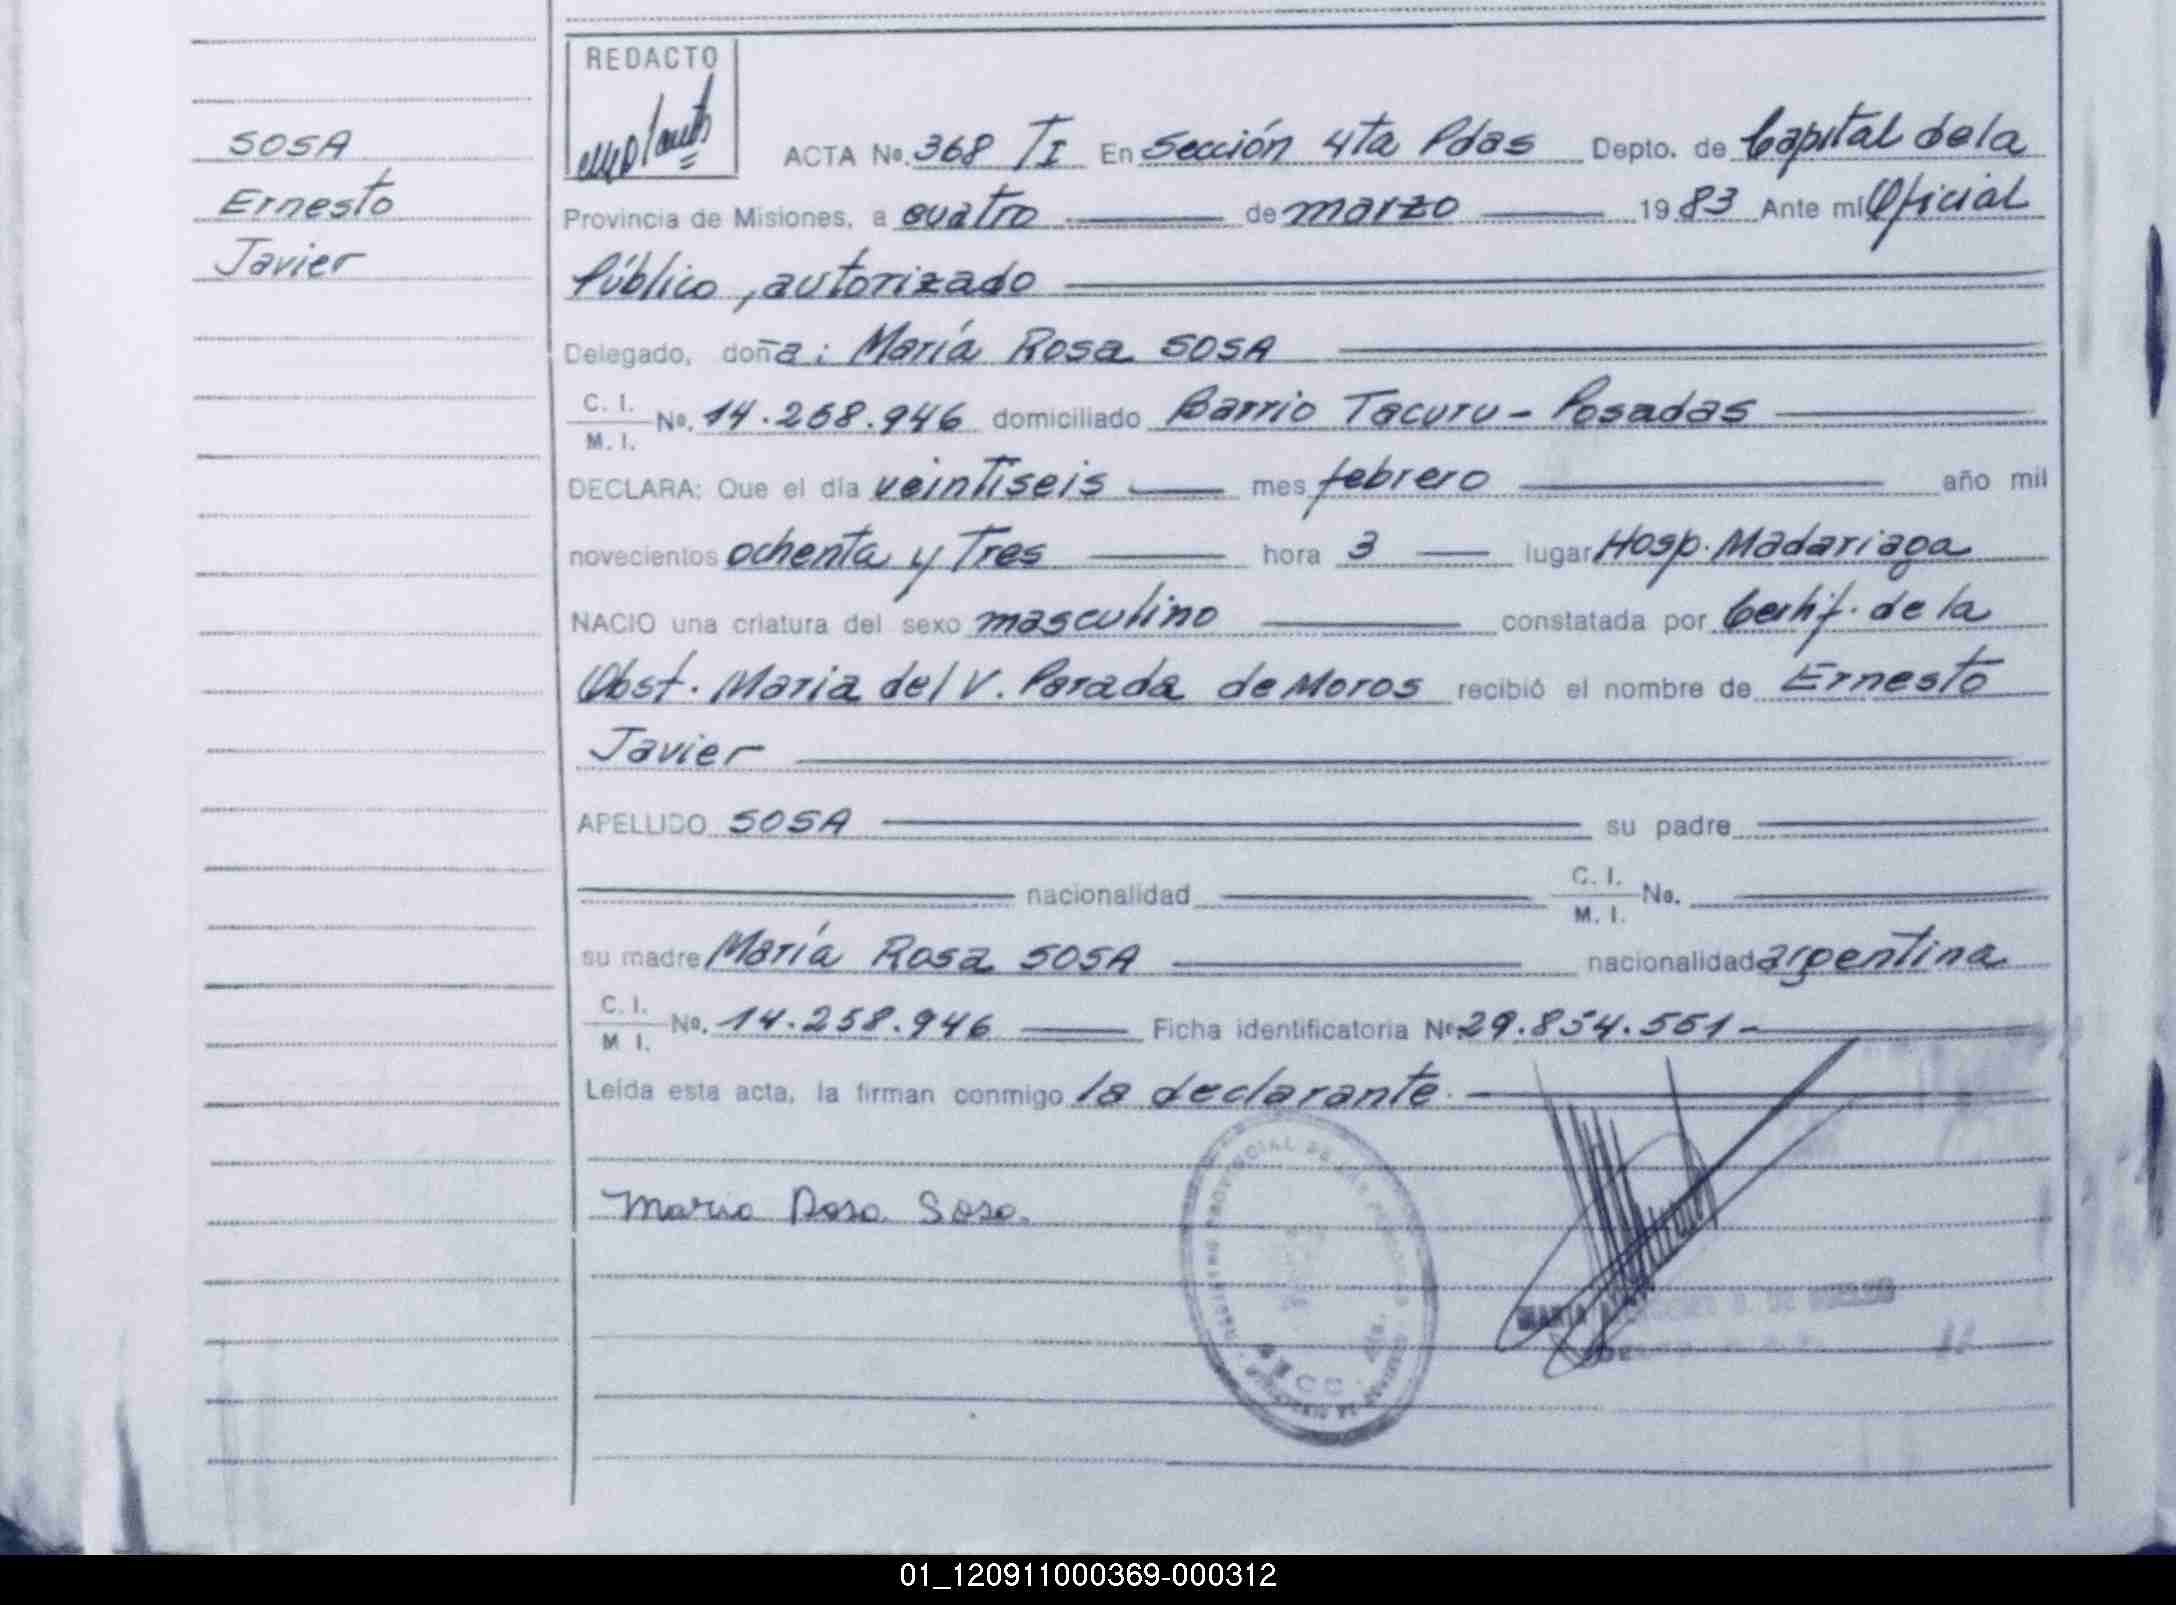 SOSA
Ernesto
Javier
REDACTO
ACTA No. 368 TI En Sección 4ta Pdas Depto. de Capital de la
Provincia de Misiones, a cuatro de marzo 1983 Ante mi Oficial
Público, autorizado
Delegado, doña: María Rosa SOSA
C. I.
M. I. No. 14.258.946 domiciliado Barrio Tacuru - Posadas
DECLARA: Que el día veintiseis mes febrero año mil
novecientos ochenta y Tres hora 3 lugar Hosp. Madariaga
NACIO una criatura del sexo masculino constatada por Certif. de la
Obst. Maria del V. Parada de Moros recibió el nombre de Ernesto
Javier
APELLIDO SOSA su padre
nacionalidad C. I.
M. I. No.
su madre María Rosa SOSA nacionalidad argentina
C. I.
M I. No. 14.258.946 Ficha identificatoria No 29.854.551-
Leída esta acta, la firman conmigo la declarante.
Maria Rosa Sosa.
01_120911000369-000312